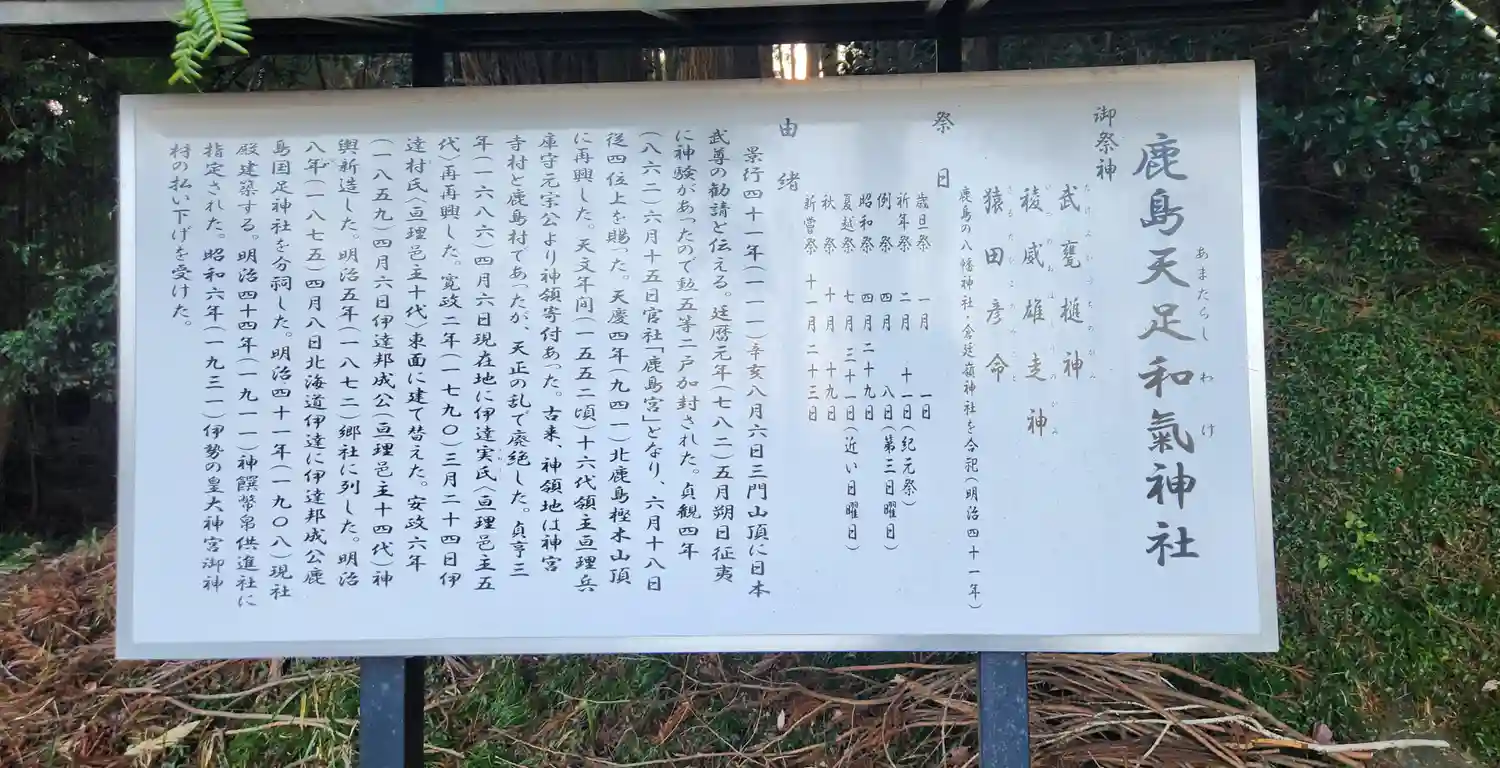 鹿島天足和氣神社
あまたらし わ け
御祭神
武甕槌神
稜威雄走神
猿田彦命
鹿島の八幡神社・倉延嶺神社を合祀(明治四十一年)
祭日
歳旦祭 一月 一日
祈年祭 二月 十一日(紀元祭)
例祭 四月 八日(第三日曜日)
昭和祭 四月 二十九日
夏越祭 七月 三十一日(近い日曜日)
秋祭 十月 十九日
新嘗祭 十一月 二十三日
由緒
景行四十一年(一一一)辛亥八月六日三門山頂に日本
武尊の勧請と伝える。延暦元年(七八二)五月朔日征夷
に神験があったので勲五等二戸加封された。貞観四年
(八六二)六月十五日官社「鹿島宮」となり、六月十八日
従四位上を賜った。天慶四年(九四一)北鹿島樫木山頂
に再興した。天文年间(一五五二頃)十六代領主亘理兵
庫守元宗公より神領寄付あった。古来、神領地は神宮
寺村と鹿島村であったが、天正の乱で廃絶した。貞亨三
年(一六八六)四月六日現在地に伊達実氏〈亘理邑主五
代〉再再興した。寛政二年(一七九〇)三月二十四日伊
達村氏〈亘理邑主十代〉東面に建て替えた。安政六年
(一八五九)四月六日伊達邦成公(亘理邑主十四代)神
輿新造した。明治五年(一八七二)郷社に列した。明治
八年(一八七五)四月八日北海道伊達に伊達邦成公鹿
島国足神社を分祠した。明治四十一年(一九〇八)現社
殿建築する。明治四十四年(一九一一)神饌幣帛供進社に
指定された。昭和六年(一九三一)伊勢の皇大神宮御神
材の払い下げを受けた。